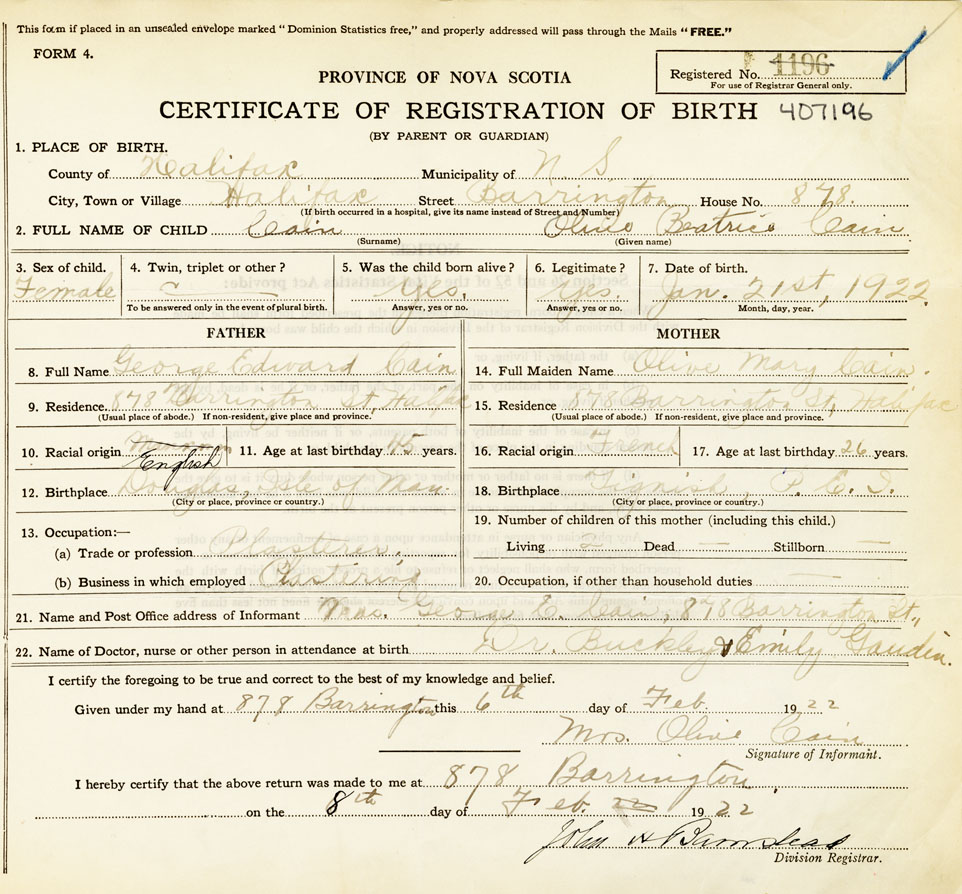 This form if placed in an unsealed envelope marked "Dominion Statistics free," and properly addressed will pass through the Mails "FREE."
FORM 4.
Registered No. 1196
For use of Registrar General only.
PROVINCE OF NOVA SCOTIA
CERTIFICATE OF REGISTRATION OF BIRTH 407196
(BY PARENT OR GUARDIAN)
1. PLACE OF BIRTH.
County of Halifax Municipality of N. S
City, Town or Village Halifax Street Barrington House No. 878.
(If birth occurred in a hospital, give its name instead of Street and Number)
2. FULL NAME OF CHILD Cain Olive Beatrice Cain
(Surname) (Given name)
3. Sex of child. 4. Twin, triplet or other? 5. Was the child born alive? 6. Legitimate? 7. Date of birth.
Female Yes, Yes. Jan. 21st, 1922.
To be answered only in the event of plural birth. Answer, yes or no. Answer, yes or no. Month, day, year.
FATHER MOTHER
8. Full Name George Edward Cain 14. Full Maiden Name Olive Mary Cain.
9. Residence 878 Barrington St Halifax 15. Residence 878 Barrington St, Halifax
(Usual place of abode.) If non-resident, give place and province. (Usual place of abode.) If non-resident, give place and province.
10. Racial origin English 11. Age at last birthday 45 years. 16. Racial origin French 17. Age at last birthday 26 years.
12. Birthplace Douglas, Isle of Man. 18. Birthplace Tignish, P. E. I.
(City or place, province or country.) (City or place, province or country.)
13. Occupation:— 19. Number of children of this mother (including this child.)
(a) Trade or profession Plasterer. Living 2 Dead — Stillborn —
(b) Business in which employed Plastering 20. Occupation, if other than household duties —
21. Name and Post Office address of Informant Mrs. George E. Cain, 878 Barrington St.,
22. Name of Doctor, nurse or other person in attendance at birth Dr. Buckley & Emily Gaudin.
I certify the foregoing to be true and correct to the best of my knowledge and belief.
Given under my hand at 878 Barrington this 6th day of Feb. 1922
Mrs. Olive Cain
Signature of Informant.
I hereby certify that the above return was made to me at 878 Barrington
on the 8th day of Feb. 22 1922
John H Barnstead
Division Registrar.